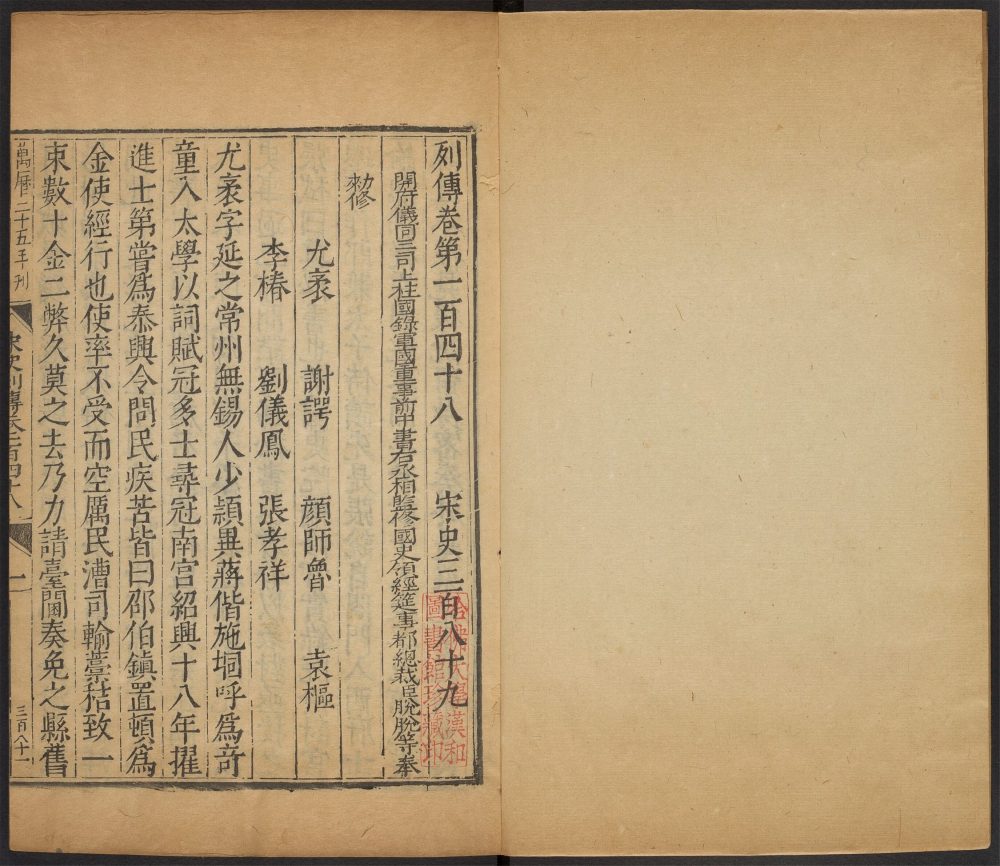 列傳卷第一百四十八　宋史三百八十九
開府儀同三司上柱國錄軍國重事前中書右丞相監修國史領經筵事都總裁臣脫脫等奉
勑修
尤袤　謝諤　顏師魯　袁樞
李椿　劉儀鳳　張孝祥
尤袤字延之常州無錫人少頴異蔣偕施坰呼爲竒
童入太學以詞賦冠多士尋冠南宮紹興十八年擢
進士第嘗爲泰興令問民疾苦皆曰邵伯鎮置頓爲
金使經行也使率不受而空厲民漕司輸藁秸致一
束數十金二弊久莫之去乃力請臺閫奏免之縣舊
萬曆二十五年刊
宋史列傳卷一百四十八
一
三百八十
哈佛大學漢和
圖書館珍藏印